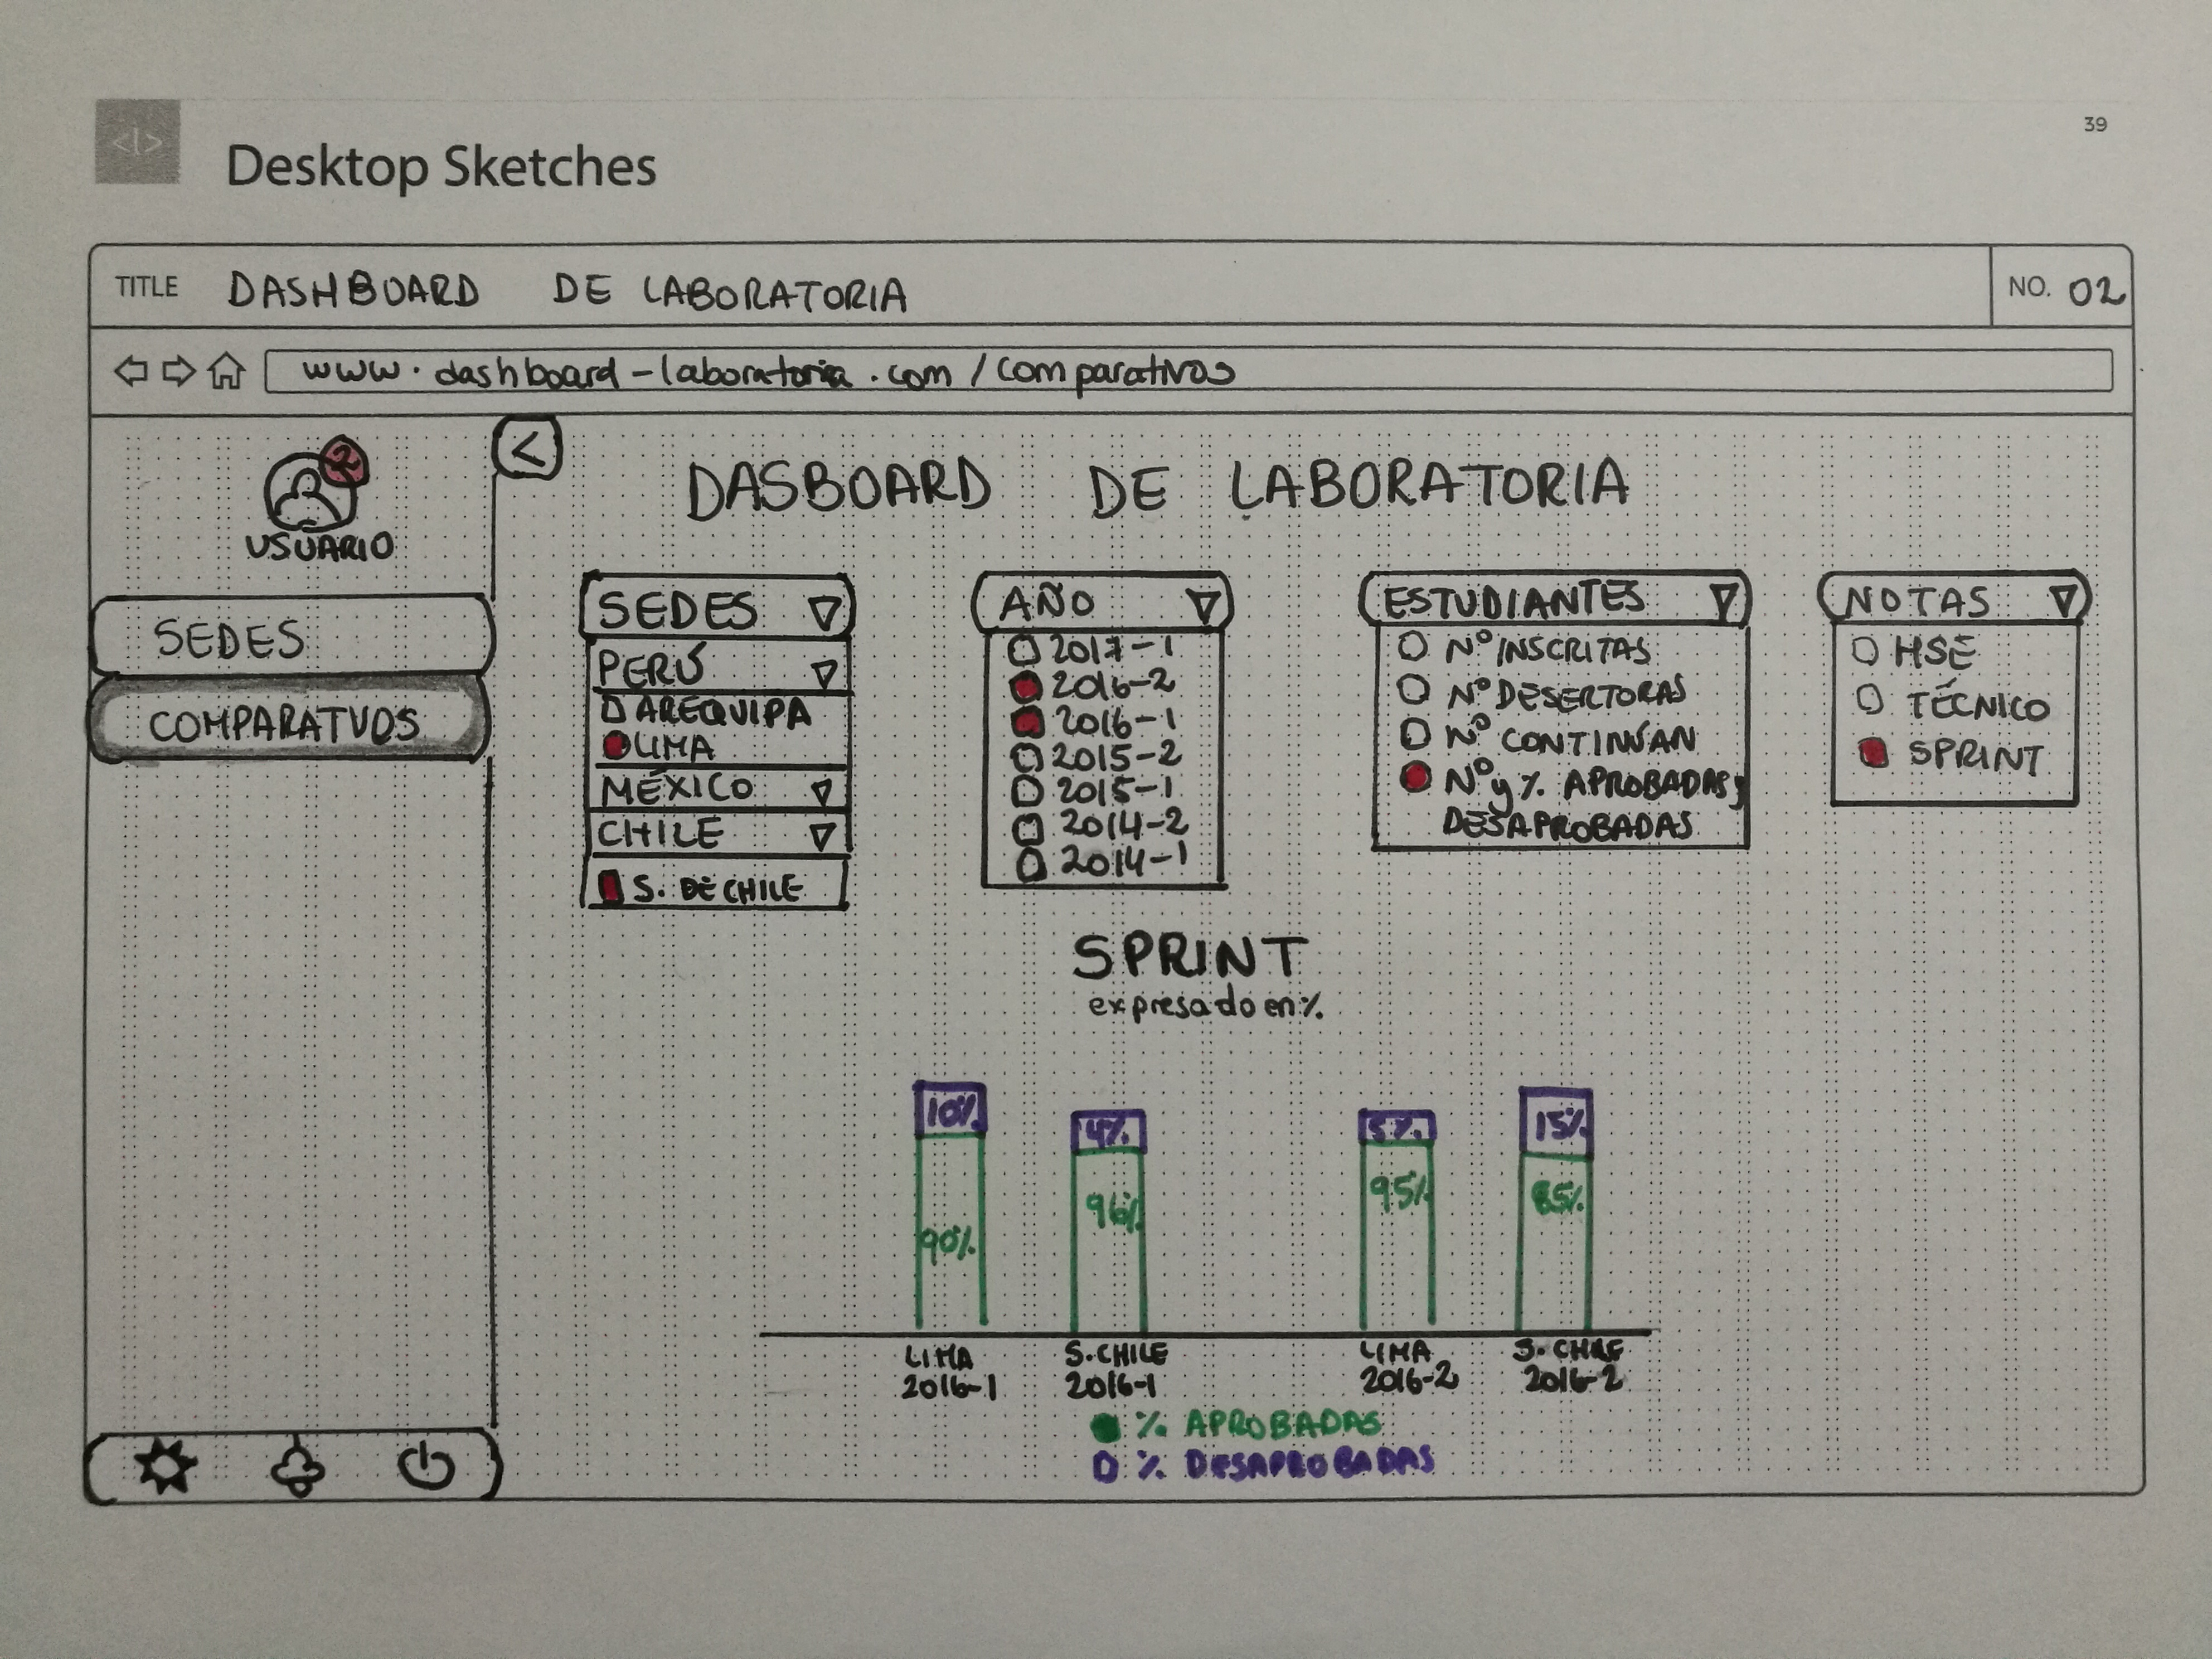 39
<|>
Desktop Sketches
TITLE DASHBOARD DE LABORATORIA
NO. 02
www.dashboard-laboratoria.com/comparativos
2
USUARIO
<
DASBOARD DE LABORATORIA
SEDES
COMPARATVOS
SEDES
PERÚ
AREQUIPA
LIMA
MÉXICO
CHILE
S. DE CHILE
AÑO
2017-1
2016-2
2016-1
2015-2
2015-1
2014-2
2014-1
ESTUDIANTES
Nº INSCRITAS
Nº DESERTORAS
Nº CONTINÚAN
Nº y % APROBADAS y
DESAPROBADAS
NOTAS
HSE
TÉCNICO
SPRINT
SPRINT
expresado en %
10% 4% 5% 15%
90% 96% 95% 85%
LIMA S.CHILE LIMA S.CHILE
2016-1 2016-1 2016-2 2016-2
% APROBADAS
% DESAPROBADAS